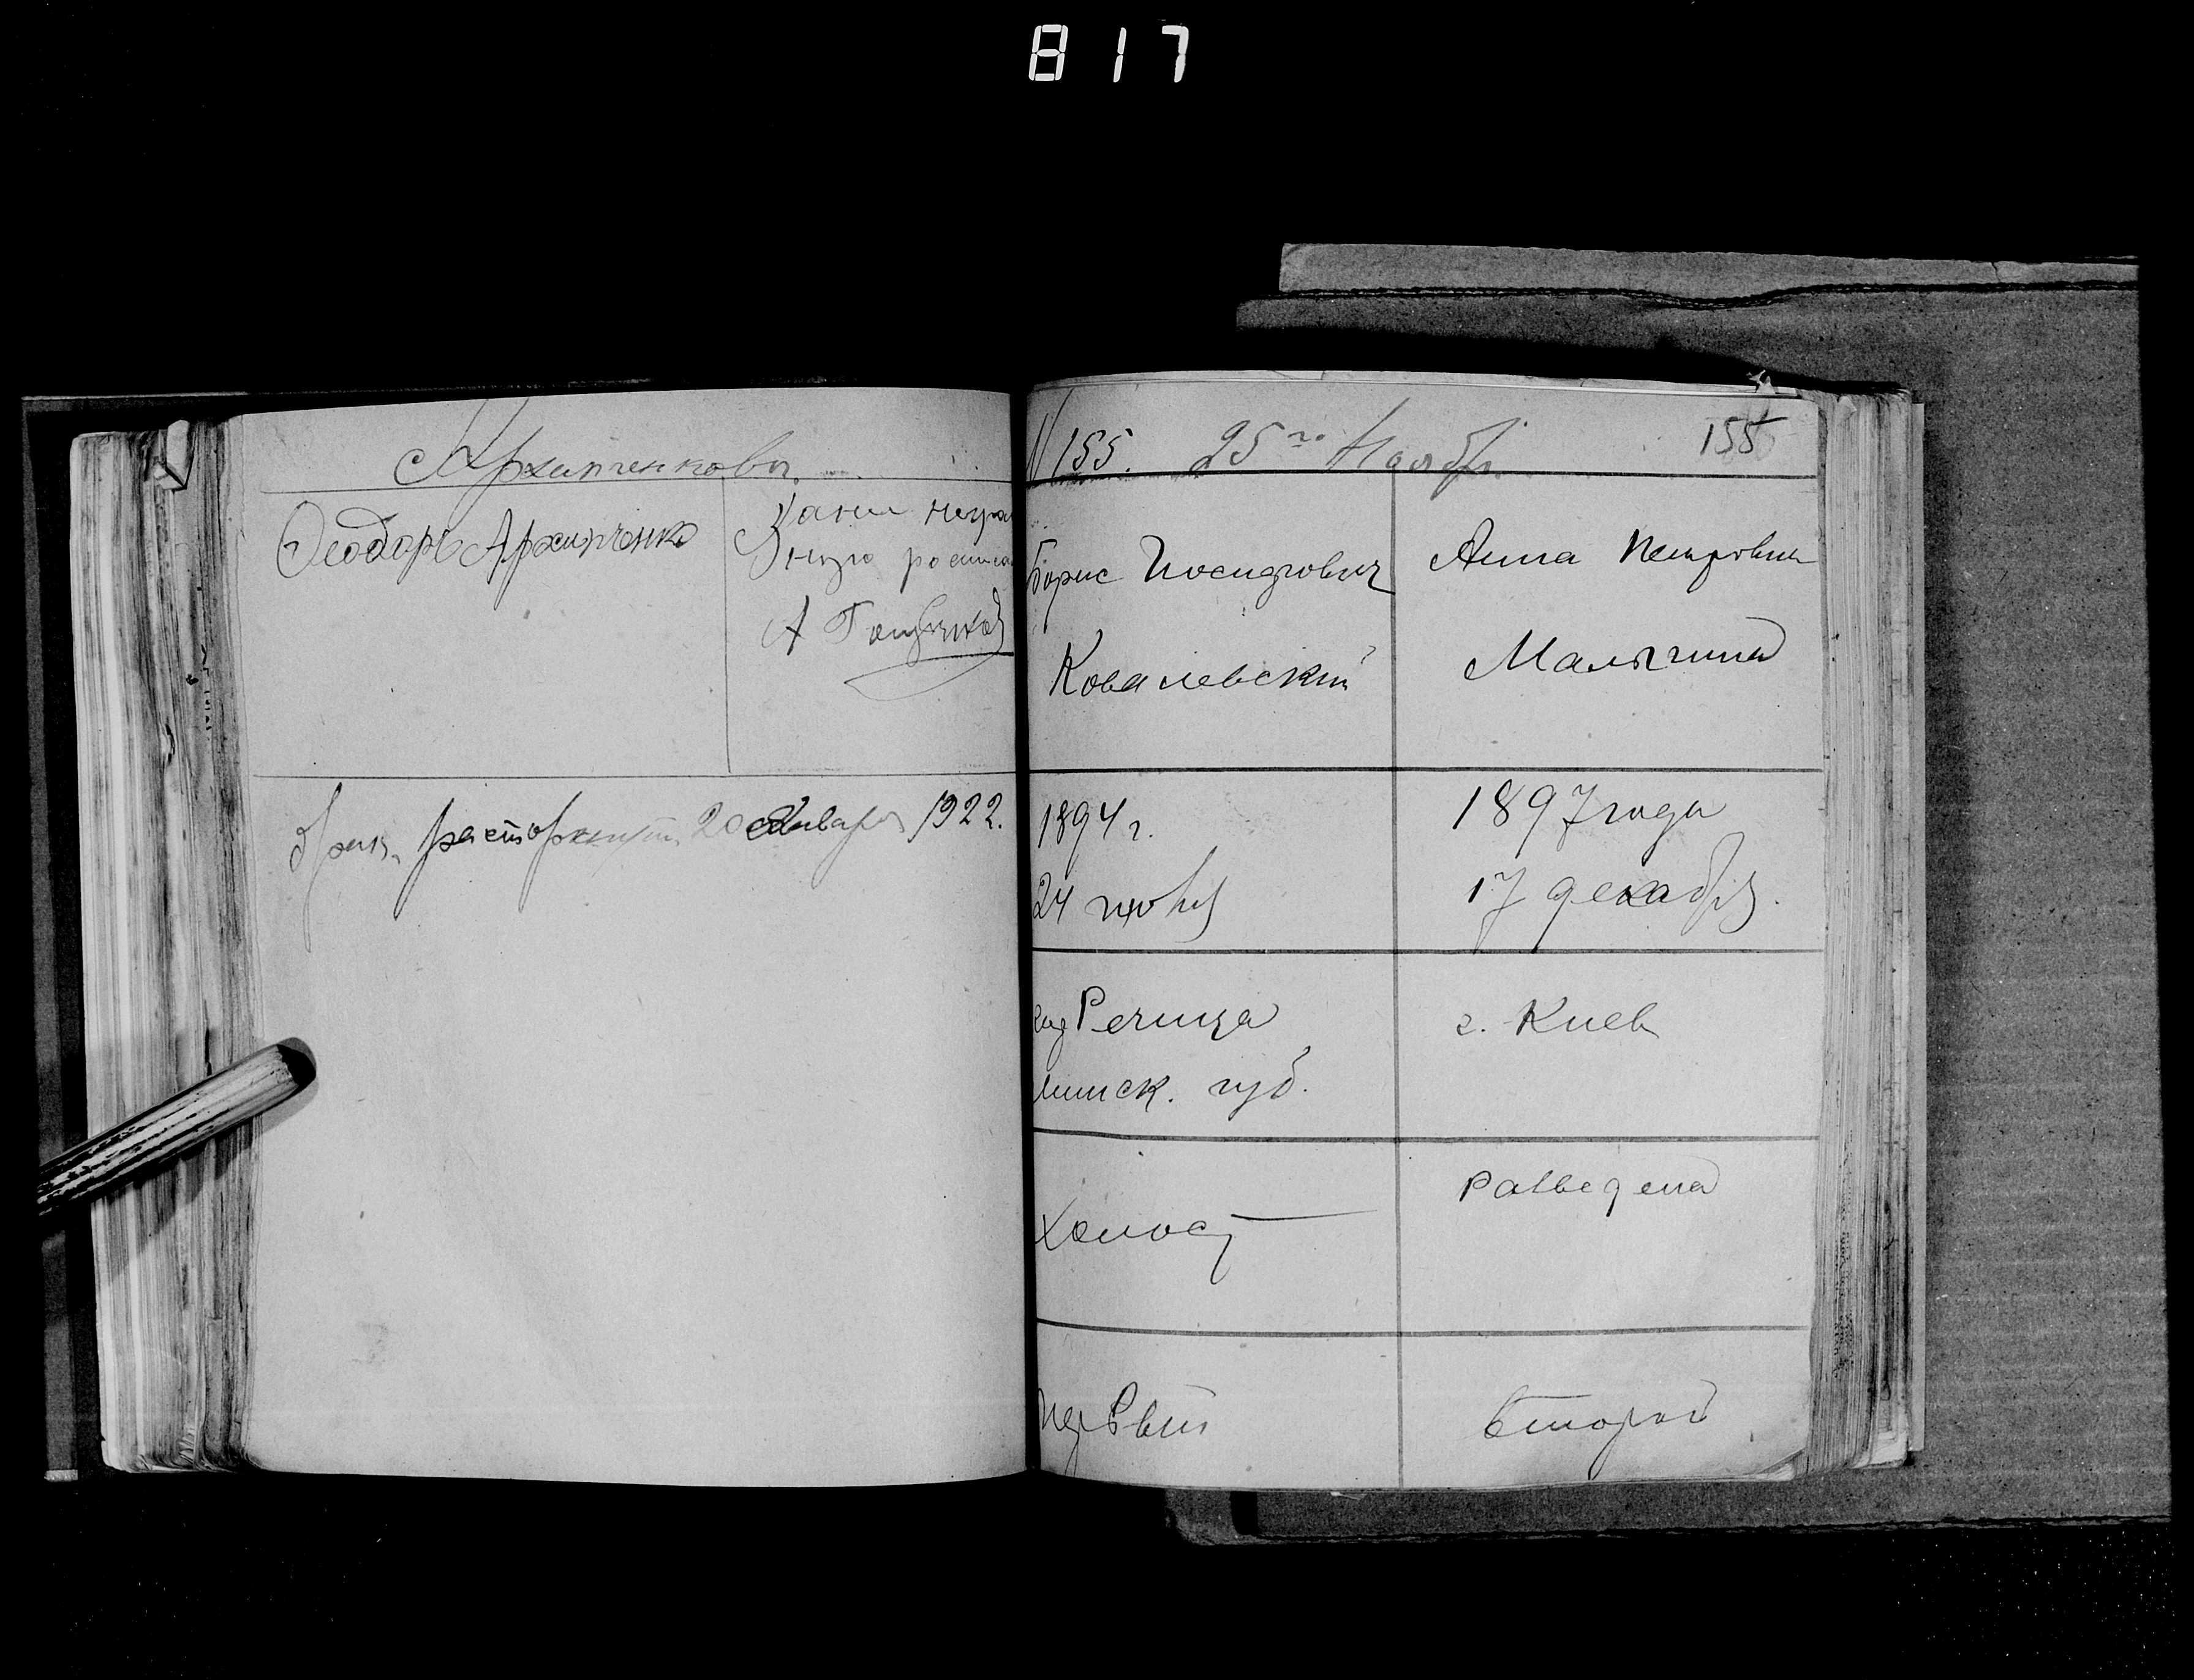 817
Архипченковы.
Ѳеодоръ Архипченко
За нгра
ную роспис
А
Брак расторгнут 20 Января 1922.
№ 155. 25го Ноября 155
Борис Иосифович
Ковалевский
Анна Петровна
Малыгина
1894 г.
24 июня
1897 года
17 декабря.
Речица
Минск. губ.
г. Киев
Холост
разведена
первый
второй